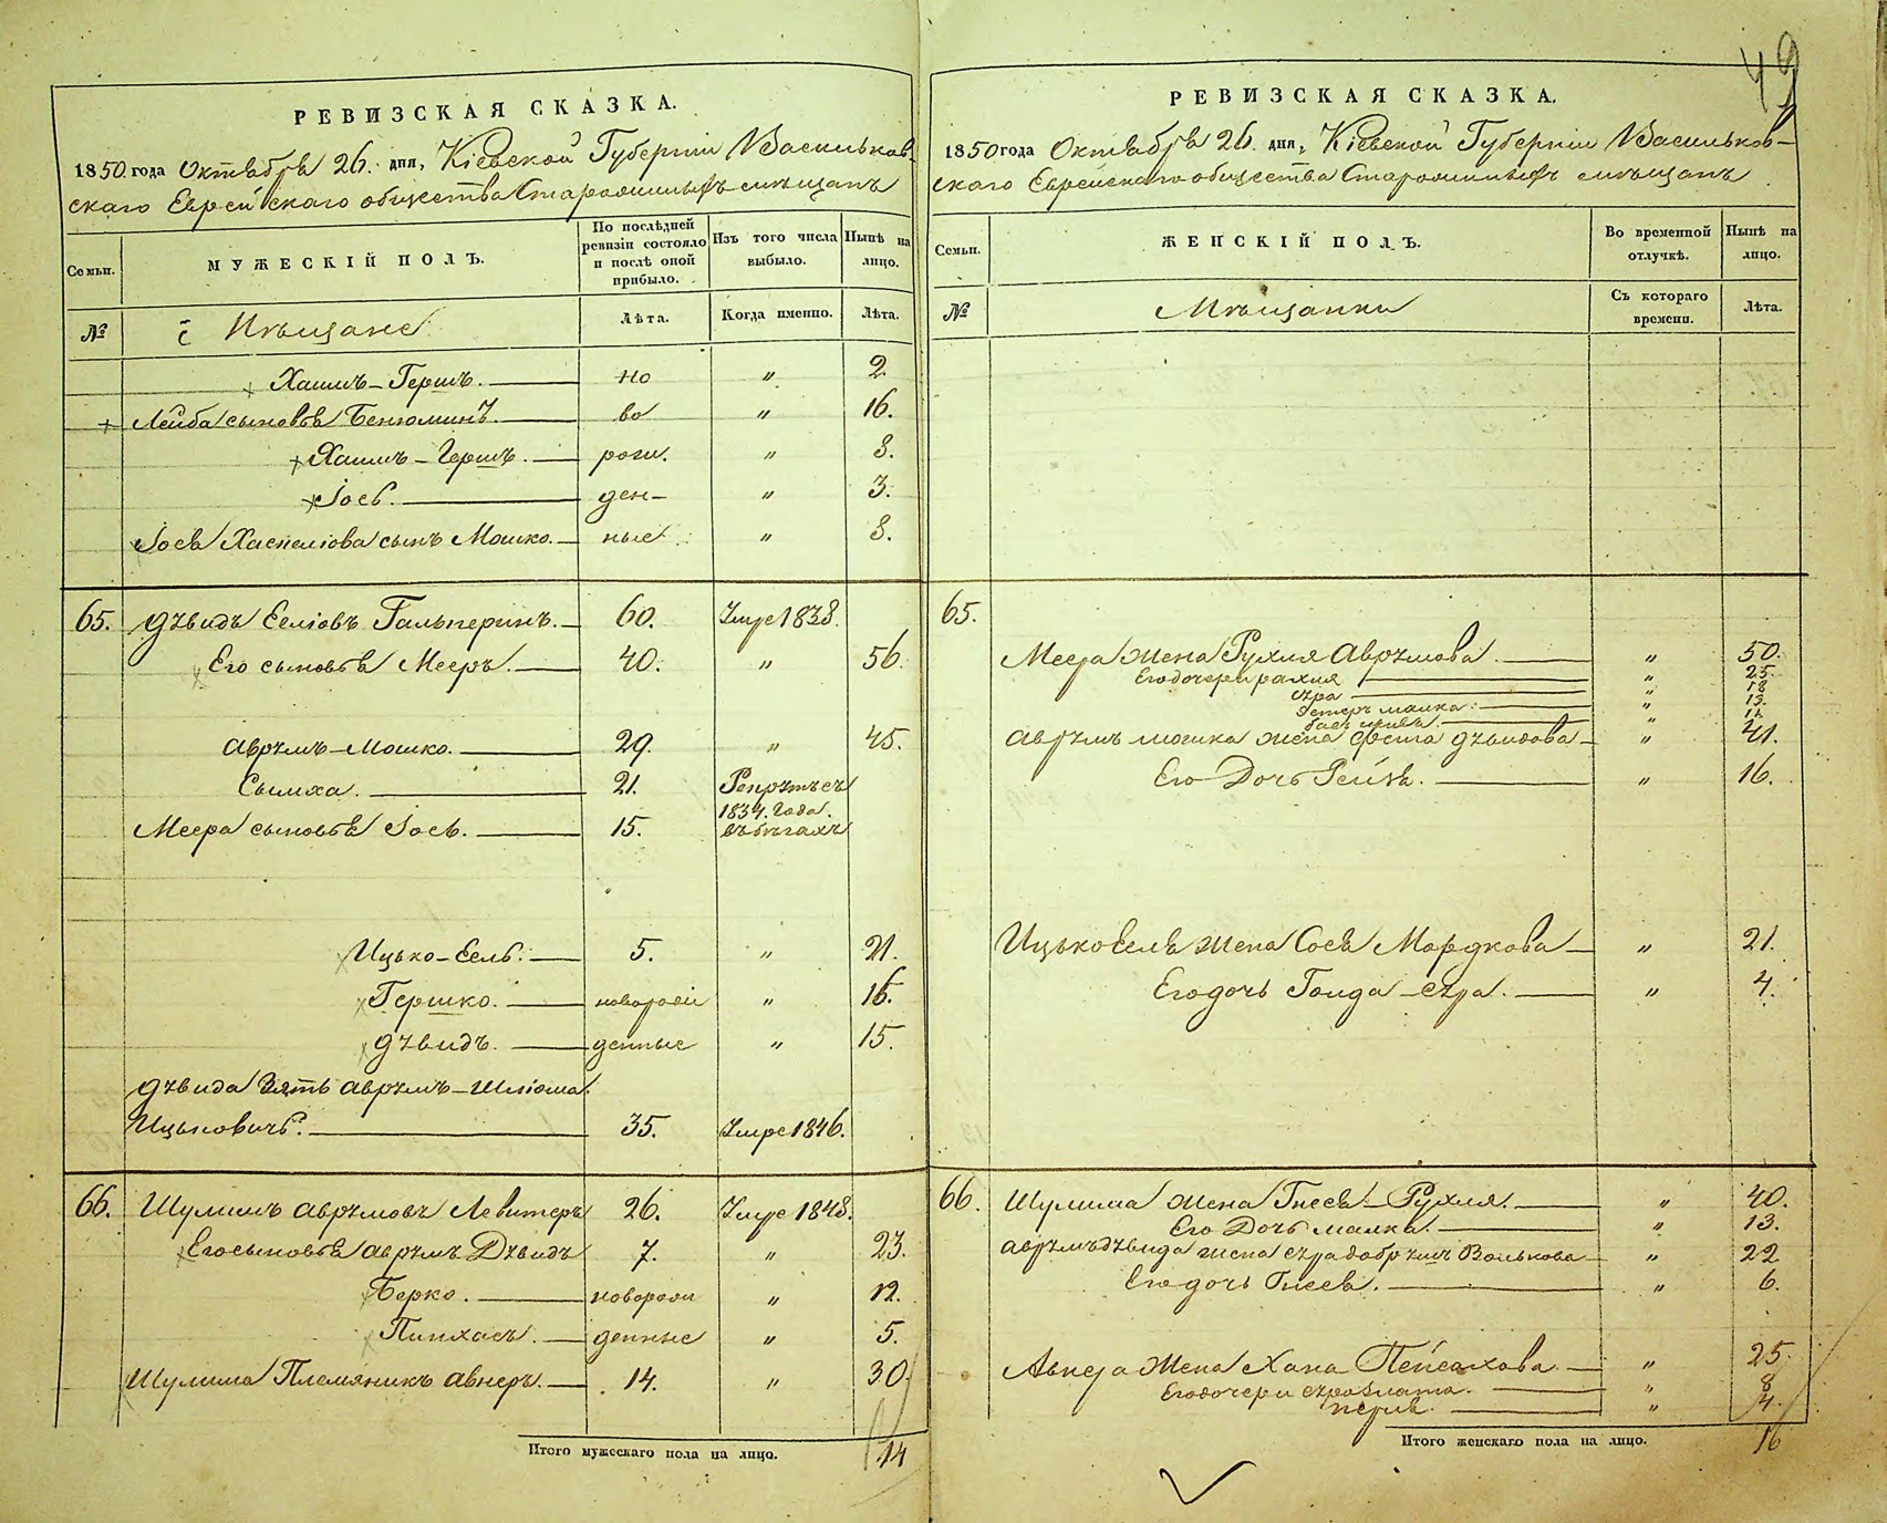 49
РЕВИЗСКАЯ СКАЗКА.
1850 года Октября 26. дня, Кіевской Губерніи Васильков-
скаго Еврейскаго общества Старожилыхъ мѣщанъ
Семьи.
МУЖЕСКІЙ ПОЛЪ.
По послѣдней ревизіи состояло и послѣ оной прибыло.
Изъ того числа выбыло.
Нынѣ на лицо.
№
Мѣщане
Лѣта.
Когда именно.
Лѣта.
Хаимъ-Гершъ. но " 2.
Лейба сыновья Бенюминъ. во " 16.
Хаимъ-Гершъ. рож. " 8.
Іось. ден- " 3.
Іося Хаскеліова сынъ Мошко. ные " 8.
65. Дувидъ Селіовъ Гальперинъ. 60. Умре 1838.
Его сыновья Мееръ. 40. " 56.
Аврумъ-Мошко. 29. " 45.
Сымха. 21. Рекрутъ съ 1834. года.
Меера сыновья Іось. 15. въ бѣгахъ
Ицько-Сель. 5. " 21.
Гершко. новорож " 16.
Дувидъ. денные " 15.
Дувида Зять Аврумъ-Шліома
Ицьковичъ. 35. Умре 1846.
66. Шулимъ Аврумовъ Левитеръ 26. Умре 1848.
Его сыновья Аврумъ Дувидъ 7. " 23.
Берко. новорож " 12.
Пинхасъ. денные " 5.
Шулима Племяникъ Авнеръ. 14. " 30.
Итого мужескаго пола на лицо. 14
РЕВИЗСКАЯ СКАЗКА.
1850 года Октября 26. дня, Кіевской Губерніи Васильков-
скаго Еврейскаго общества Старожилыхъ мѣщанъ
Семьи.
ЖЕНСКІЙ ПОЛЪ.
Во временной отлучкѣ.
Нынѣ на лицо.
№
Мѣщанки
Съ котораго времени.
Лѣта.
65.
Меера жена Рухля Аврумова. " 50.
Его дочери рахля " 25.
сура " 18
Эстеръ малка. " 13.
" 12.
Аврумъ мошка жена фейга дувидова " 41.
Его Дочь Рейзя. " 16.
Ицько Селя жена Сося Мордкова " 21.
Его дочь Гонда-сура. " 4.
66. Шулима жена Гнеся-Рухля. " 40.
Его Дочь малка. " 13.
Аврумъ дувида жена сура добрушъ Волькова " 22
Его дочь Гнеся. " 6.
Авнера Жена Хана Пейсахова. " 25.
Его дочери сура злата. " 8.
перля. " 4.
Итого женскаго пола на лицо. 16